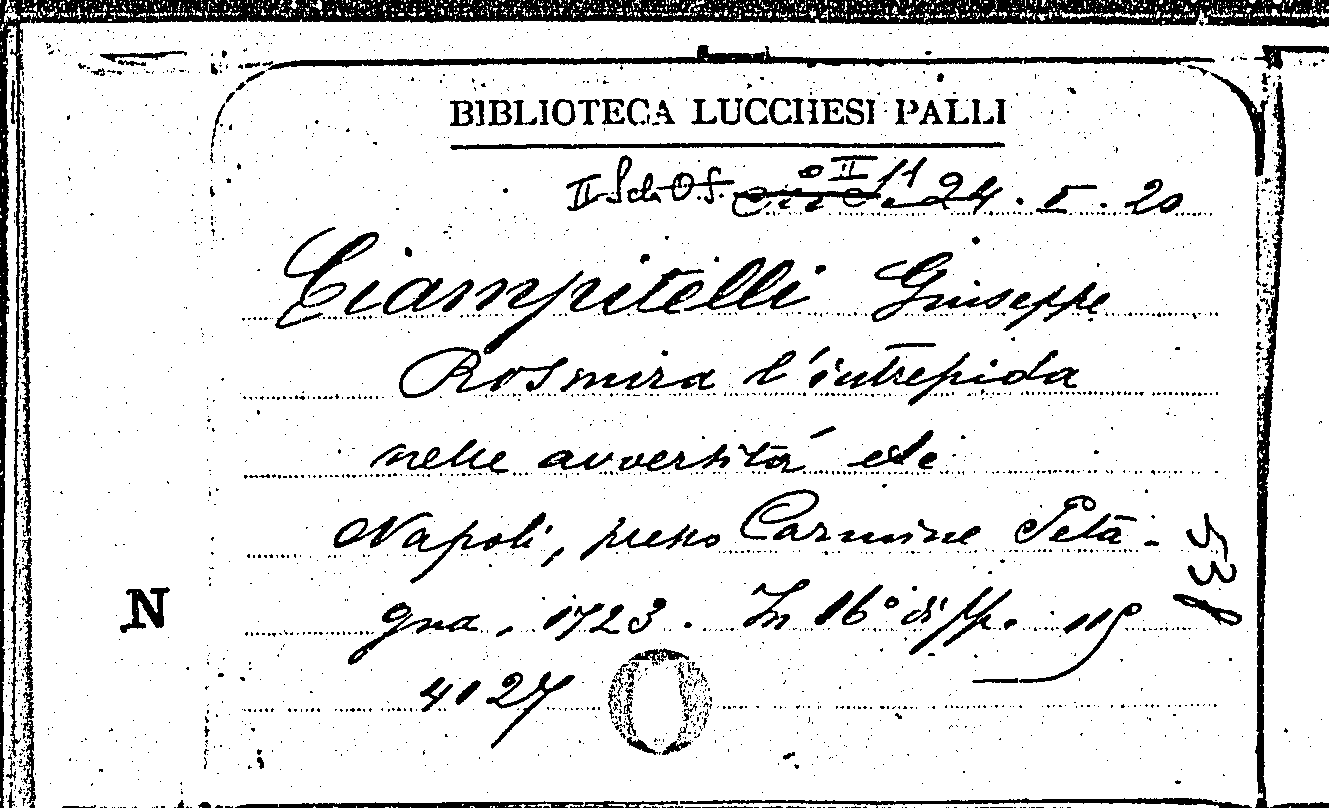 BIBLIOTECA LUCCHESI PALLI
II Sch. O. S. 24. I. 20
Ciampitelli Giuseppe
Rosmira l'intrepida
nelle avversità etc
Napoli, presso Carmine Petà-
gna, 1723. In 16° di pp. 119
4027
N